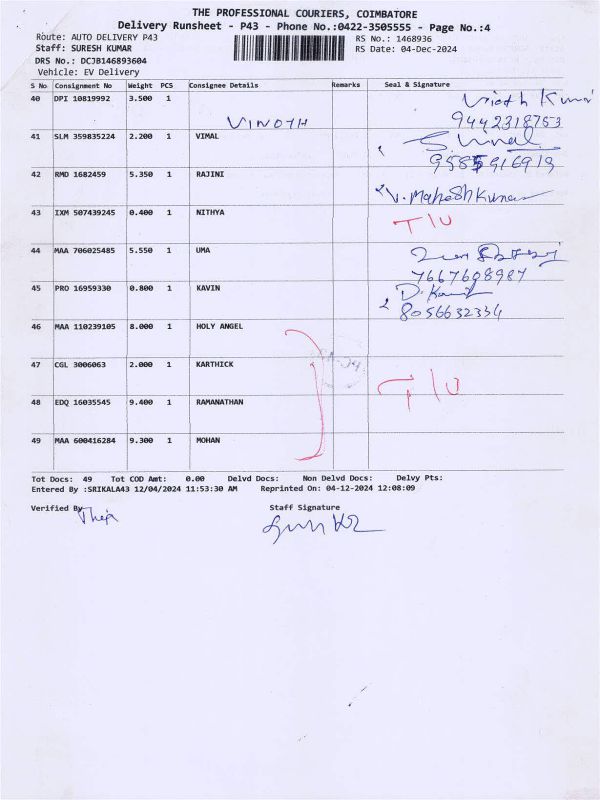 THE PROFESSIONAL COURIERS, COIMBATORE
Delivery Runsheet - P43 - Phone No.:0422-3505555 - Page No.:4
Route: AUTO DELIVERY P43 RS No.: 1468936
Staff: SURESH KUMAR RS Date: 04-Dec-2024
DRS No.: DCJB146893604
Vehicle: EV Delivery
S No Consignment No Weight PCS Consignee Details Remarks Seal & Signature
40 DPI 10819992 3.500 1
VINOTH 9442318753
41 SLM 359835224 2.200 1 VIMAL S. Vimal
9585916919
42 RMD 1682459 5.350 1 RAJINI V. MaheshKumar
43 IXM 507439245 0.400 1 NITHYA T/U
44 MAA 706025485 5.550 1 UMA
7667608987
45 PRO 16959330 0.800 1 KAVIN D. Kavin
8056632334
46 MAA 110239105 8.000 1 HOLY ANGEL
47 CGL 3006063 2.000 1 KARTHICK
T/U
48 EDQ 16035545 9.400 1 RAMANATHAN
49 MAA 600416284 9.300 1 MOHAN
Tot Docs: 49 Tot COD Amt: 0.00 Delvd Docs: Non Delvd Docs: Delvy Pts:
Entered By :SRIKALA43 12/04/2024 11:53:30 AM Reprinted On: 04-12-2024 12:08:09
Verified By Staff Signature